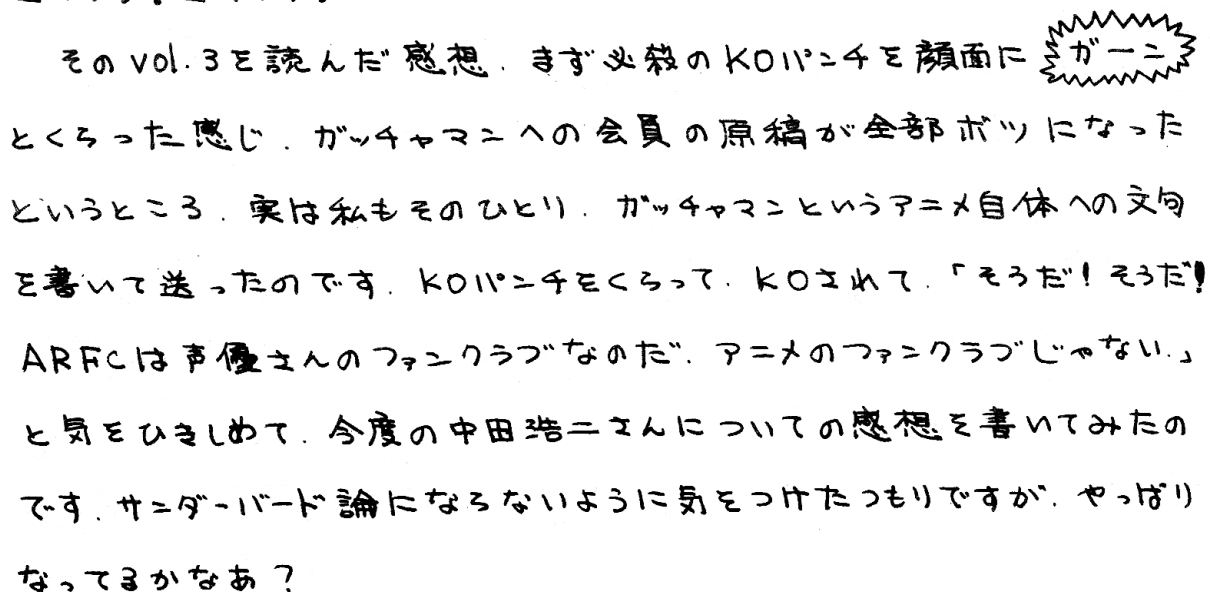 そのvol.3を読んだ感想. まず必殺のKOパンチを顔面にガーン
とくらった感じ. ガッチャマンへの会員の原稿が全部ボツになった
というところ. 実は私もそのひとり. ガッチャマンというアニメ自体への文句
を書いて送ったのです. KOパンチをくらって. KOされて.「そうだ!そうだ!
ARFCは声優さんのファンクラブなのだ. アニメのファンクラブじゃない.」
と気をひきしめて. 今度の中田浩二さんについての感想を書いてみたの
です. サンダーバード論にならないように気をつけたつもりですが. やっぱり
なってるかなあ?